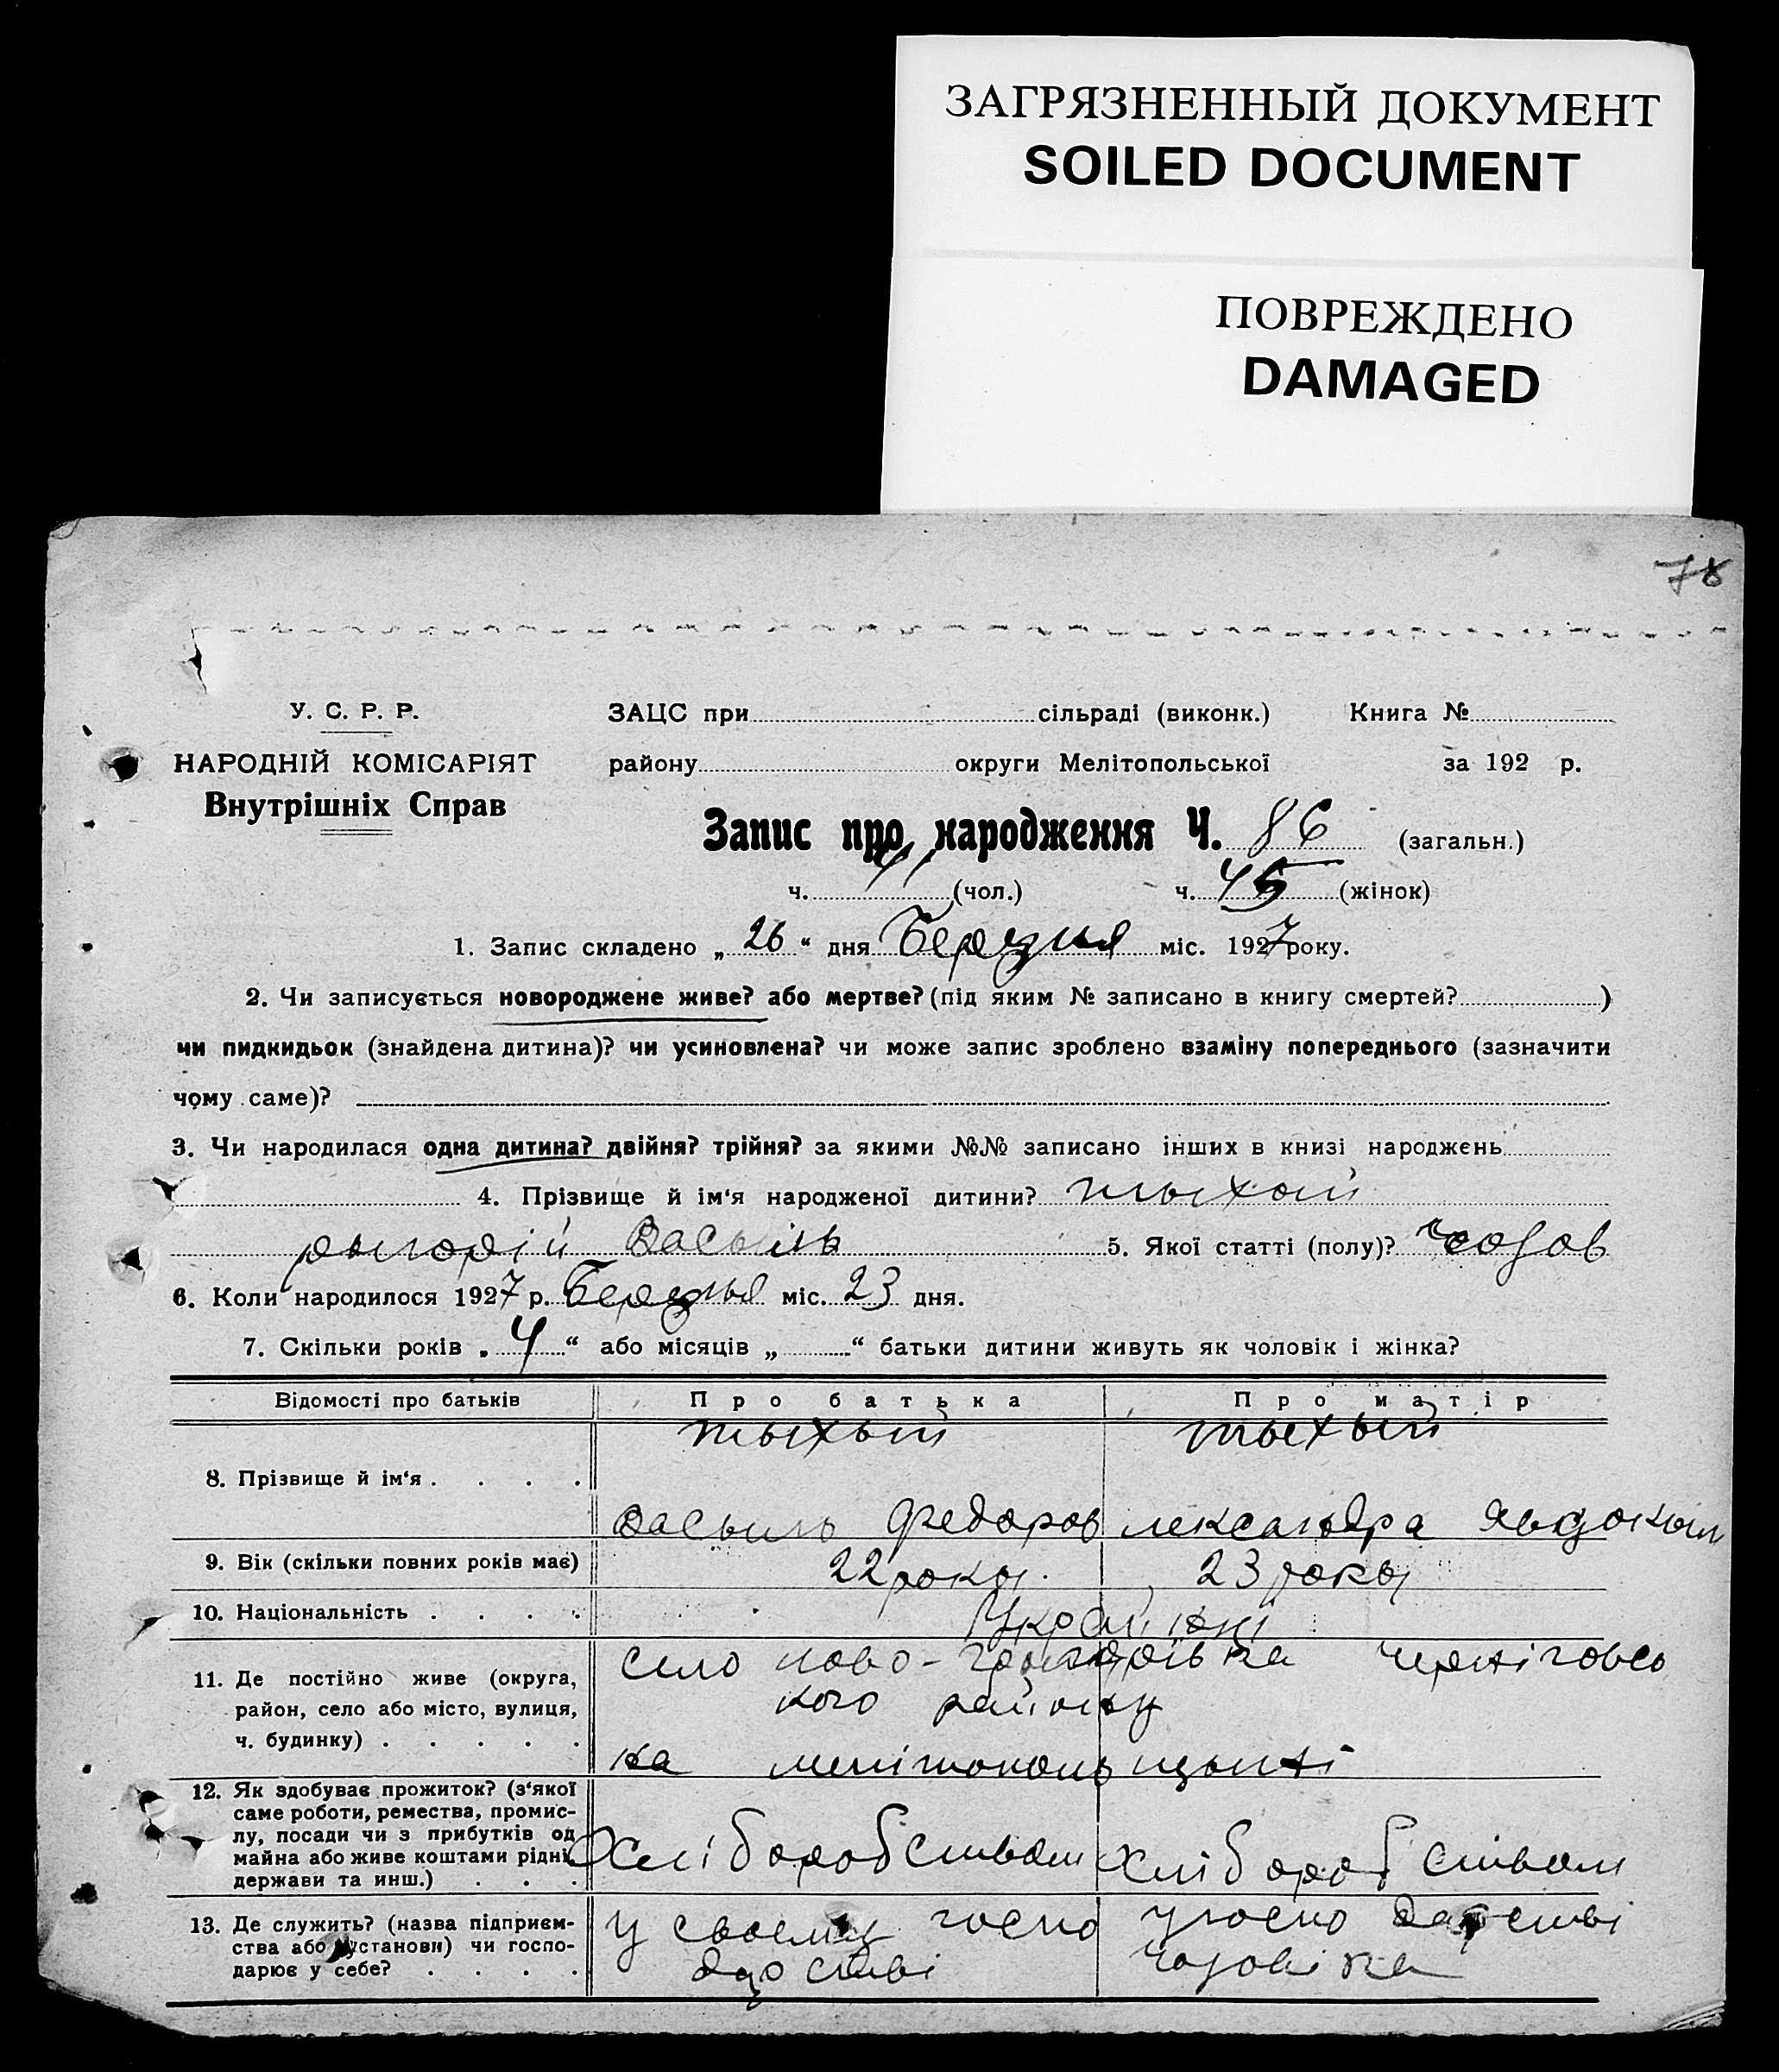 ЗАГРЯЗНЕННЫЙ ДОКУМЕНТ
SOILED DOCUMENT
ПОВРЕЖДЕНО
DAMAGED
78
У. С. Р. Р.
НАРОДНІЙ КОМІСАРІЯТ
Внутрішніх Справ
ЗАЦС при сільраді (виконк.) Книга №
району округи Мелітопольської за 192 р.
Запис про народження Ч. 86 (загальн.)
ч. 41 (чол.) ч. 45 (жінок)
1. Запис складено „ 26 “ дня Березня міс. 1927 року.
2. Чи записується новороджене живе? або мертве? (під яким № записано в книгу смертей? )
чи пидкидьок (знайдена дитина)? чи усиновлена? чи може запис зроблено взаміну попереднього (зазначити
чому саме)?
3. Чи народилася одна дитина? двійня? трійня? за якими №№ записано інших в книзі народжень
4. Прізвище й ім‘я народженої дитини? тыхый
рыгорій Васыль 5. Якої статті (полу)? чолов
6. Коли народилося 1927 р. Березня міс. 23 дня.
7. Скільки років „ 4 “ або місяців „ “ батьки дитини живуть як чоловік і жінка?
Відомості про батьків Про батька Про матір
8. Прізвище й ім‘я . . . . тыхый тыхый
Васыль Федоров лександра Явдоким
9. Вік (скільки повних років має) 22 рокы. 23 рокы
10. Національність . . . . Україні
11. Де постійно живе (округа,
район, село або місто, вулиця,
ч. будинку) . . . . .
село ново-григорівка черніговсь
кого району
на мелітопольщыні
12. Як здобуває прожиток? (з‘якої
саме роботи, ремества, промис-
лу, посади чи з прибутків од
майна або живе коштами рідні,
держави та инш.) . . .
Хліборобством Хліборобством
13. Де служить? (назва підприєм-
ства або установи) чи госпо-
дарює у себе? . . . .
у своему госпо у госпо дарстві
дарстві чоловіка